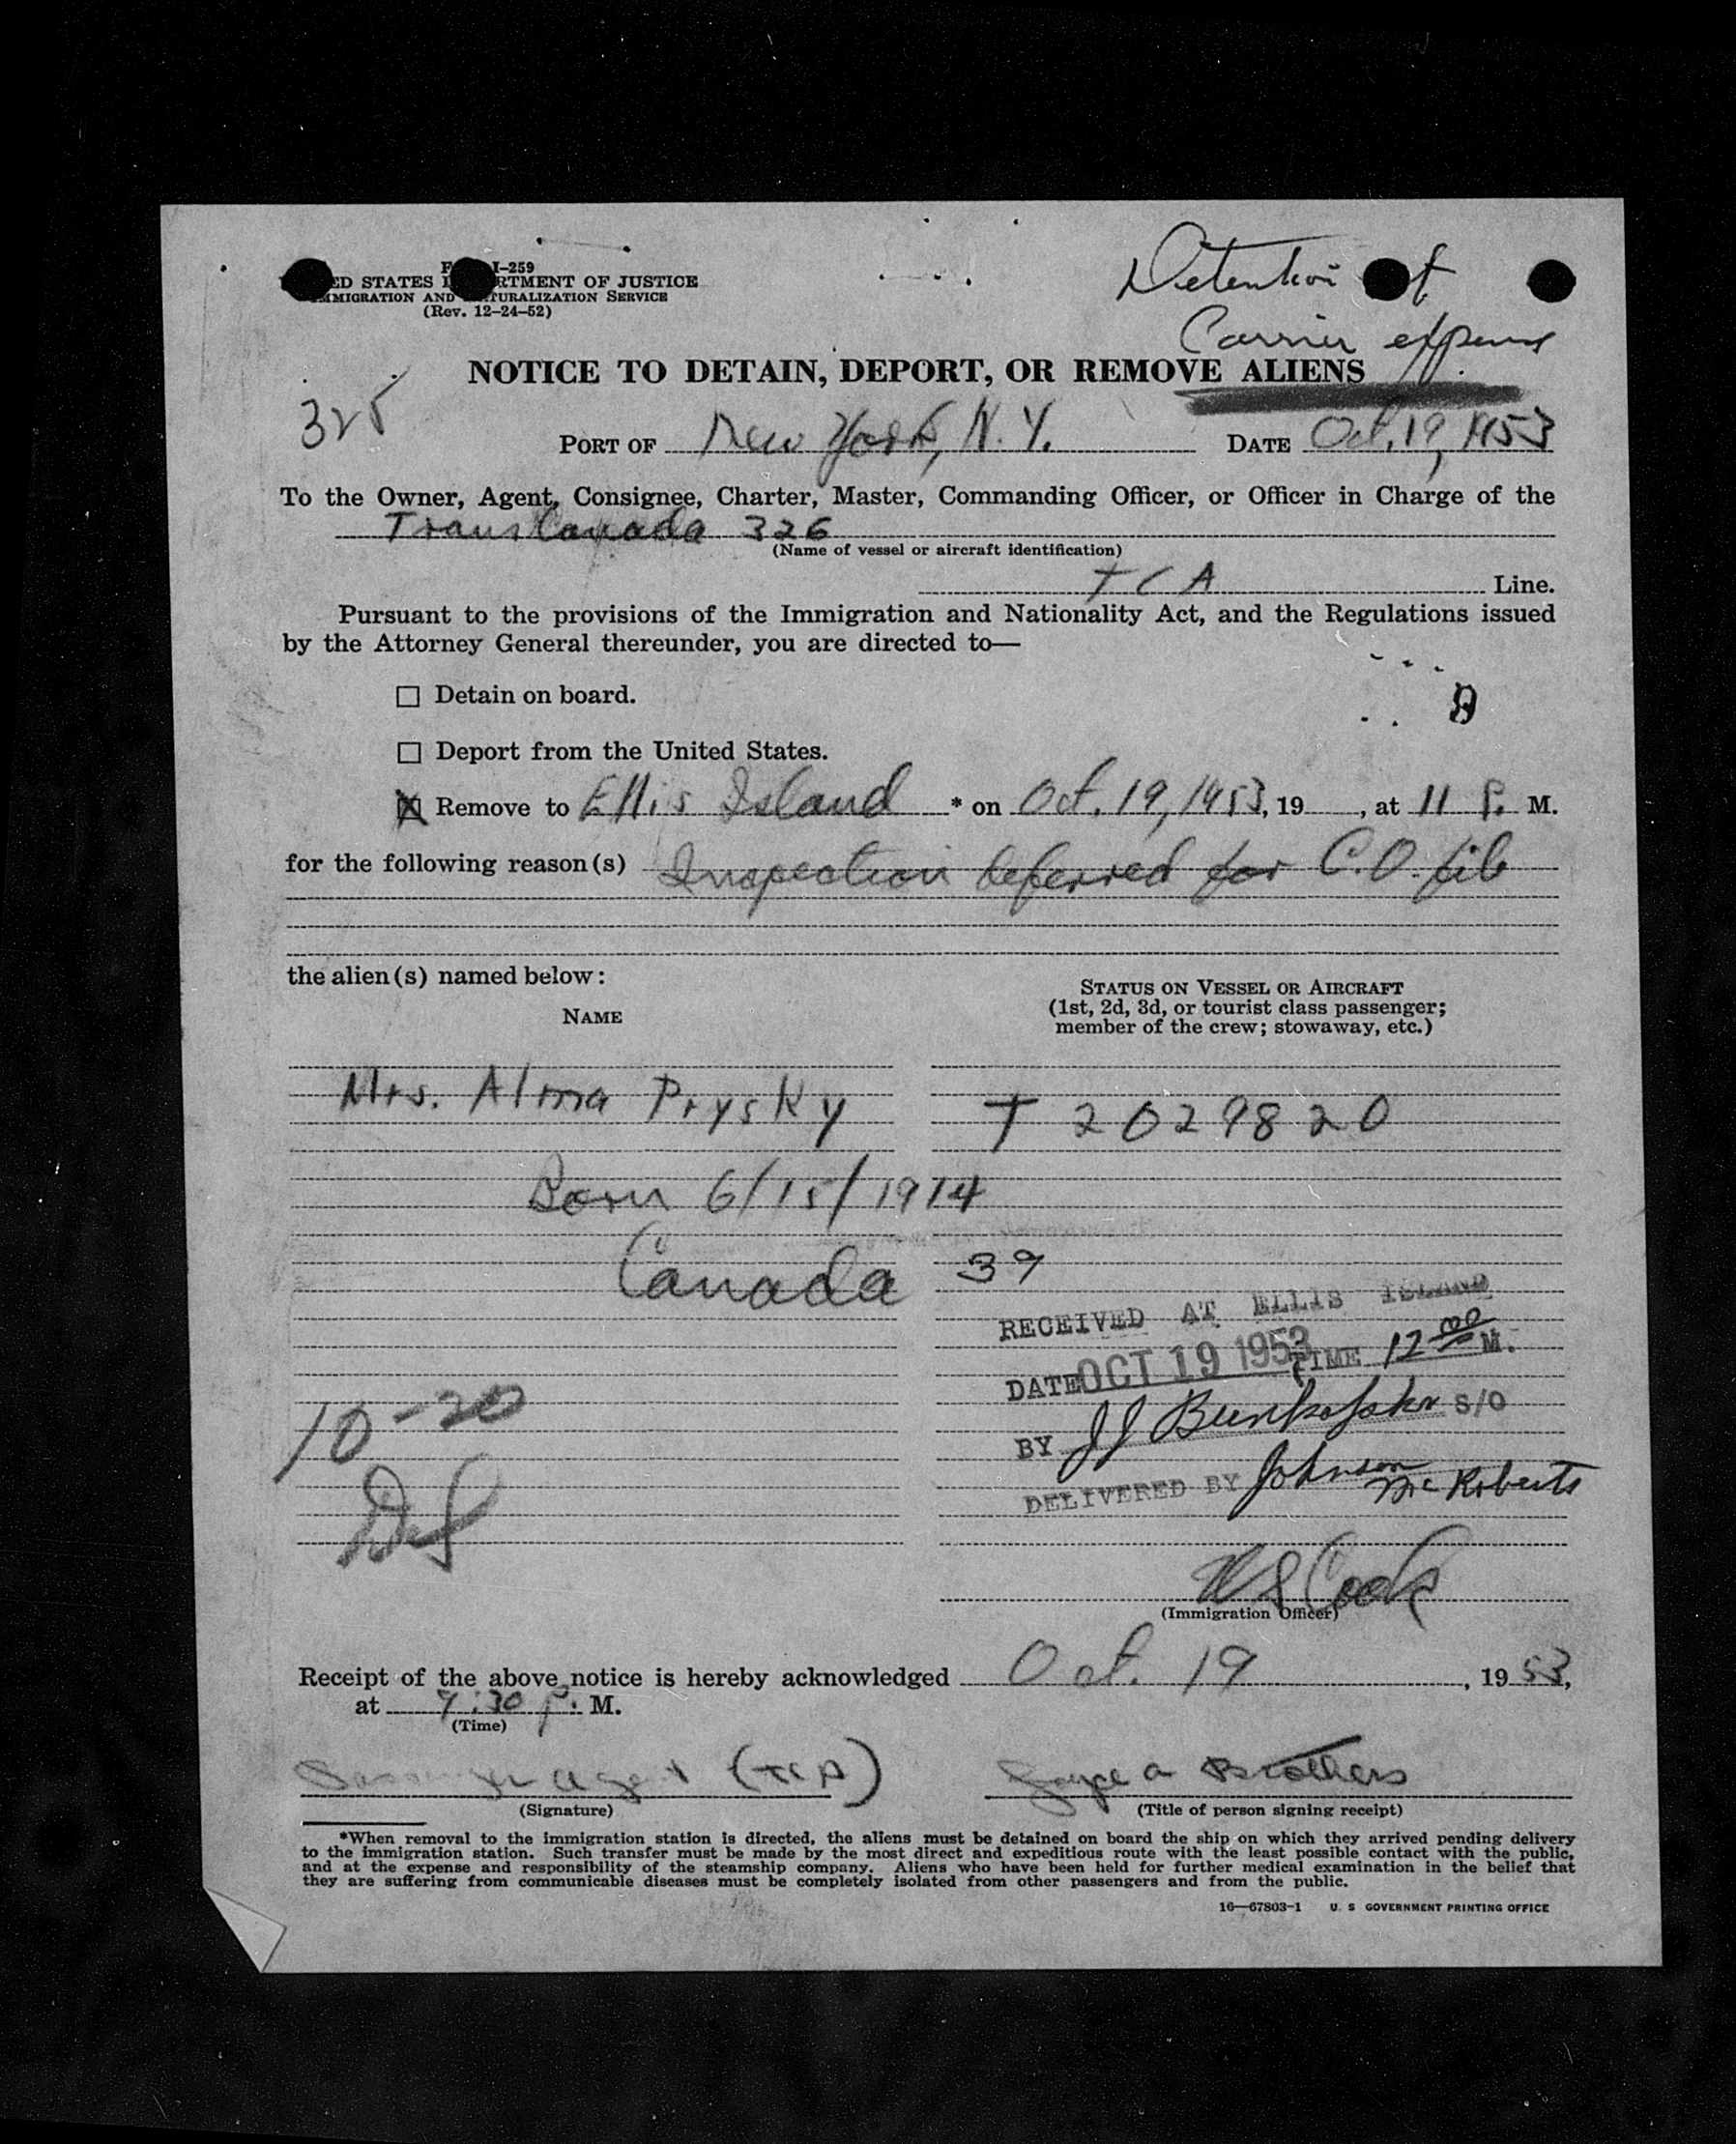 I-259
ED STATES RTMENT OF JUSTICE
MMIGRATION AND TURALIZATION SERVICE
(Rev. 12-24-52)
Detention at
Carrier expense
NOTICE TO DETAIN, DEPORT, OR REMOVE ALIENS
325
PORT OF New York, N.Y. DATE Oct. 19, 1953
To the Owner, Agent, Consignee, Charter, Master, Commanding Officer, or Officer in Charge of the
Trans Canada 326
(Name of vessel or aircraft identification)
TCA Line.
Pursuant to the provisions of the Immigration and Nationality Act, and the Regulations issued
by the Attorney General thereunder, you are directed to—
☐ Detain on board.
☐ Deport from the United States.
☒ Remove to Ellis Island * on Oct. 19, 1953, 19, at 11 P. M.
for the following reason(s) Inspection deferred for C.O. file
the alien(s) named below:
NAME
STATUS ON VESSEL OR AIRCRAFT
(1st, 2d, 3d, or tourist class passenger;
member of the crew; stowaway, etc.)
Mrs. Alma Prysky T 2029820
Born 6/15/1914
Canada 39
RECEIVED AT ELLIS ISLAND
DATE OCT 19 1953 TIME 12 00 M.
BY JJ S/O
DELIVERED BY Johnson
McRoberts
10-20
Def
Cook
(Immigration Officer)
Receipt of the above notice is hereby acknowledged Oct. 19, 1953,
at :30 P. M.
(Time)
Passenger Agent (TCA) Joyce A Brothers
(Signature) (Title of person signing receipt)
*When removal to the immigration station is directed, the aliens must be detained on board the ship on which they arrived pending delivery
to the immigration station. Such transfer must be made by the most direct and expeditious route with the least possible contact with the public,
and at the expense and responsibility of the steamship company. Aliens who have been held for further medical examination in the belief that
they are suffering from communicable diseases must be completely isolated from other passengers and from the public.
16—67803-1 U. S GOVERNMENT PRINTING OFFICE